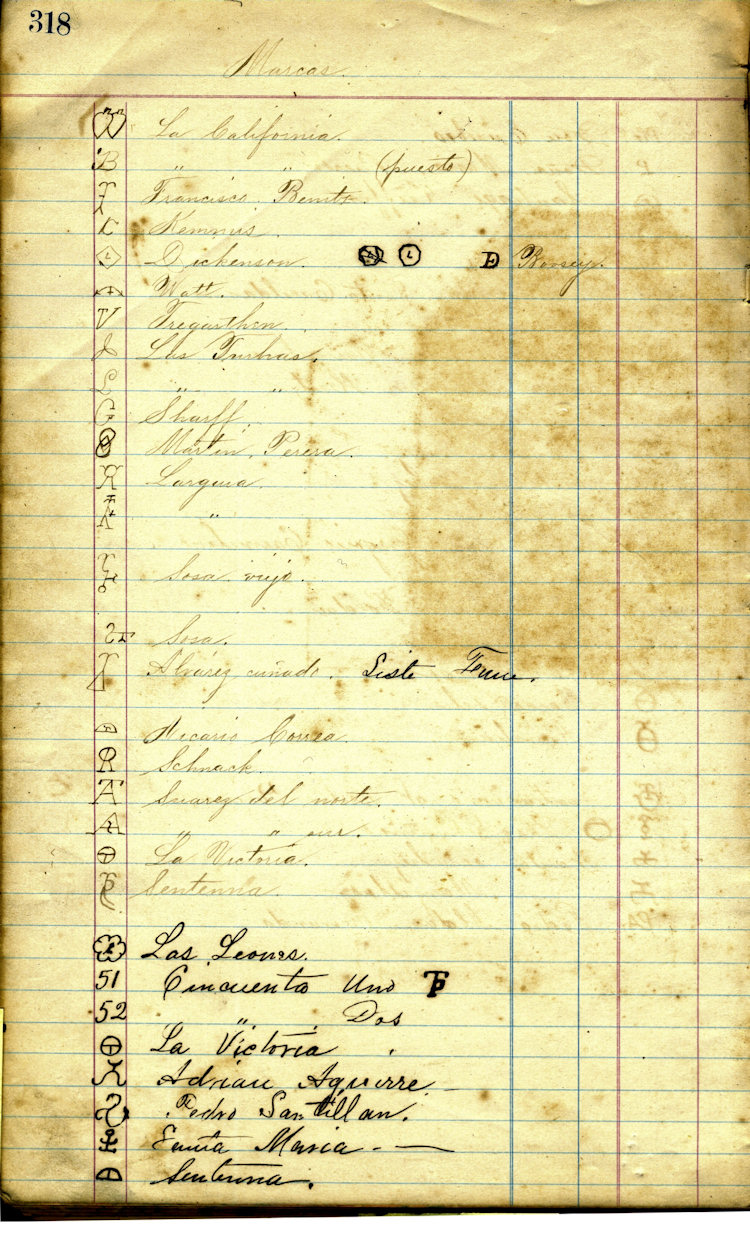 318
Marcas.
La California.
B " " (puesto)
Francisco Benito.
Kemmis.
L Dickenson. L E Boosey.
Watt.
V Tregarthen.
Las Turbias.
" "
Sharff.
Martin Perera.
Larguia.
"
Sosa viejo.
Sosa.
Alvarez cuñado. Siste
Necario Correa.
R Schnack.
Suarez del norte.
A " " sur.
La Victoria.
Sentenna.
Los Leones.
51 Cincuenta Uno
52 " Dos
La Victoria.
Adrian Aguirre
Pedro Santillan.
Santa Maria
Sentenna.